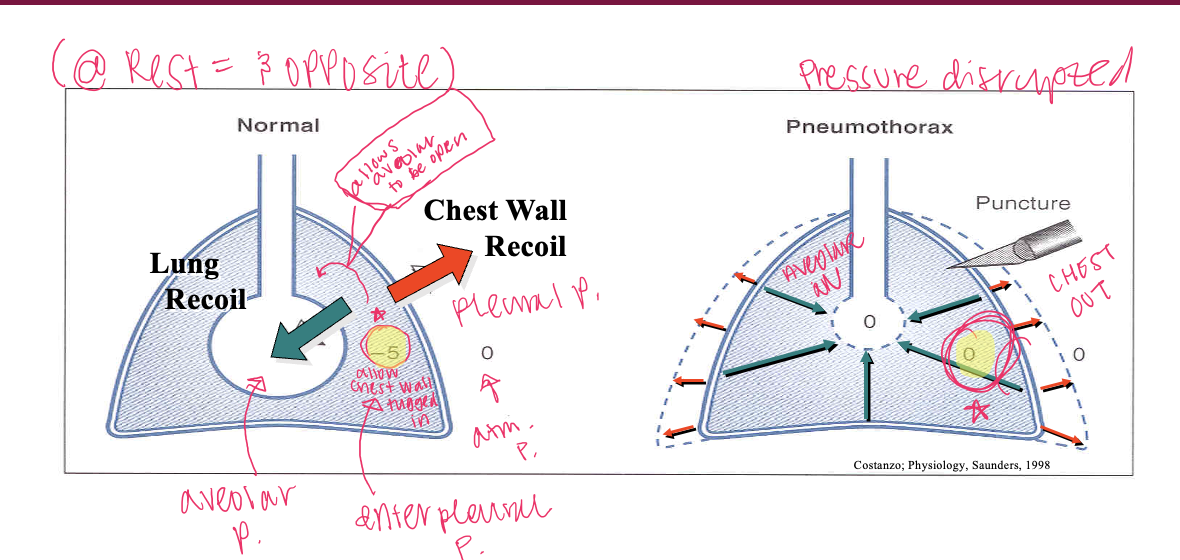 (@ Rest = & opposite)
Pressure disrupted
Normal
allows
aveolar
to be open
Chest Wall
Recoil
Lung
Recoil
pleural P.
-5
0
allow
chest wall
tugged
in
atm.
P.
aveolar
P.
enterpleural
P.
Pneumothorax
Puncture
AVEOLAR
IN
CHEST
OUT
0
0
0
Costanzo; Physiology, Saunders, 1998